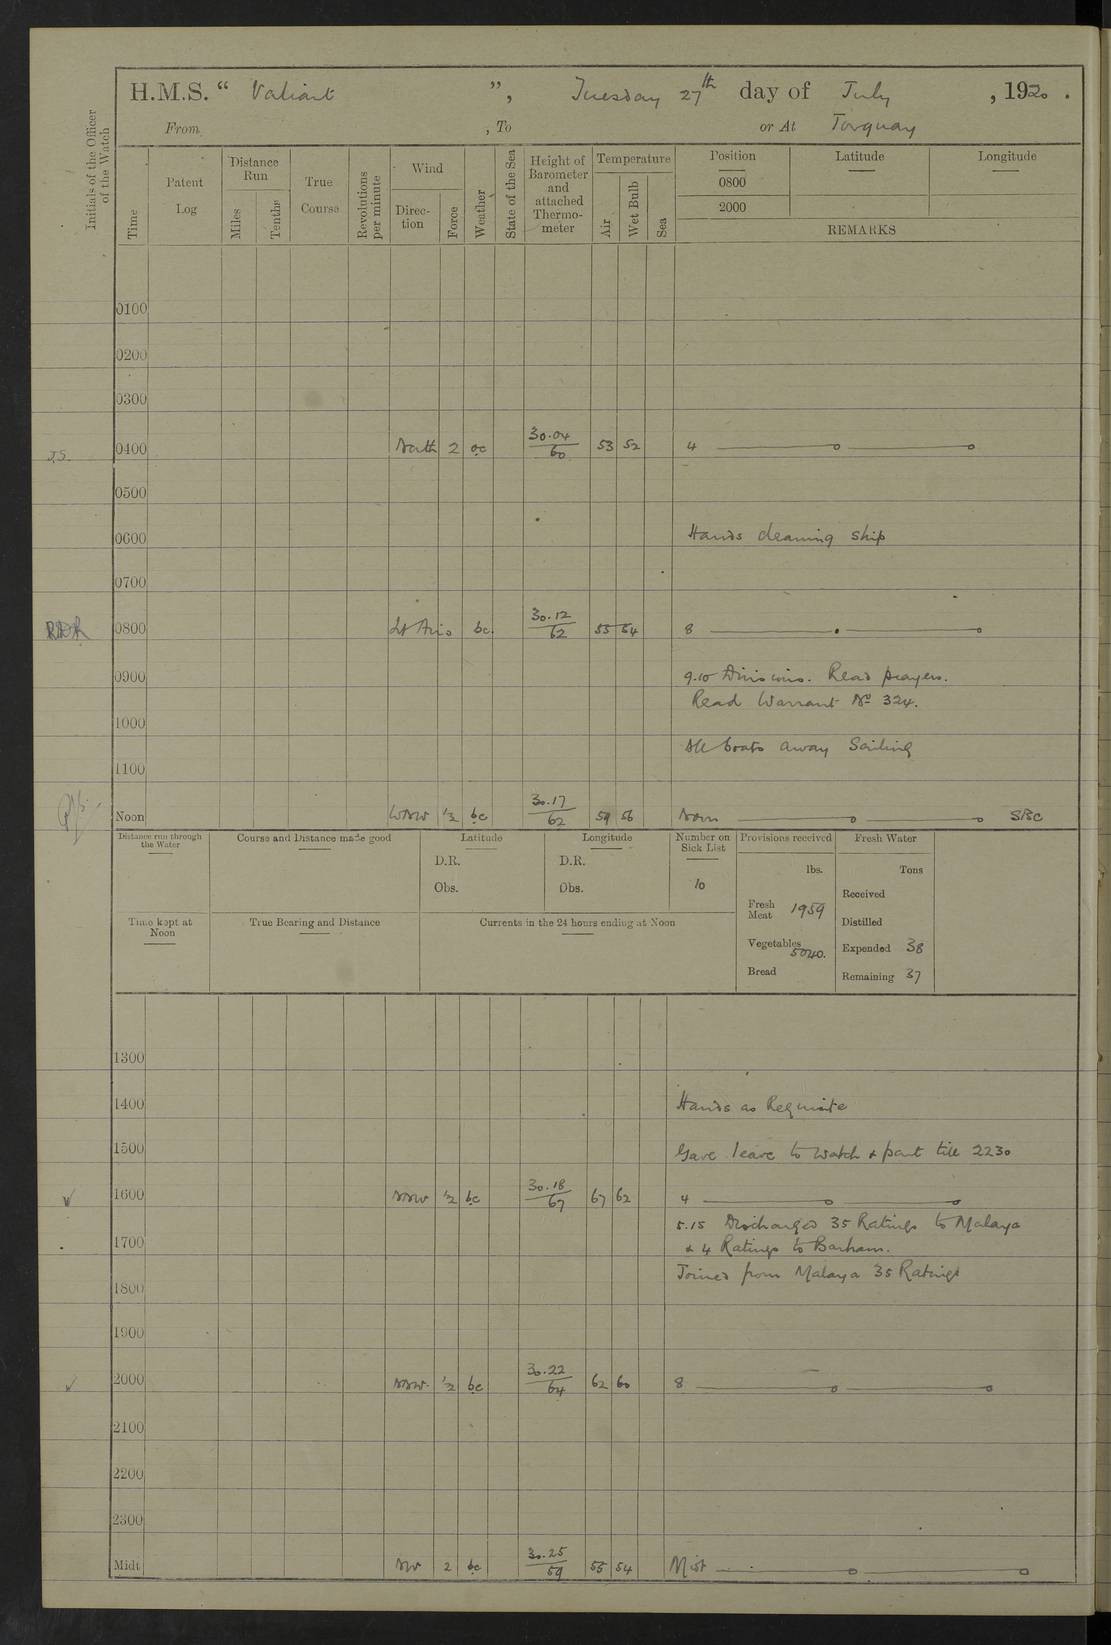 H.M.S. “ Valiant ”, Tuesday 27th day of July , 1920 .
From , To or At Torquay
Initials of the Officer of the Watch
Time
Patent Log
Distance Run
Miles
Tenths
True Course
Revolutions per minute
Wind
Direc-tion
Force
Weather
State of the Sea
Height of Barometer and attached Thermo-meter
Temperature
Air
Wet Bulb
Sea
Position Latitude Longitude
0800
2000
REMARKS
0100
0200
0300
J.S. 0400 North 2 oc 30.04/60 53 52 4
0500
0600 Hands cleaning ship
0700
0800 Lt Airs bc 30.12/62 55 54 8
0900 9.10 Divisions. Read prayers.
Read Warrant No 324.
1000
All boats away Sailing
1100
Noon WNW 1/2 bc 30.17/62 59 56 Noon SBC
Distance run through the Water
Course and Distance made good
Latitude
D.R.
Obs.
Longitude
D.R.
Obs.
Number on Sick List
10
Provisions received
lbs.
Fresh Meat 1959
Vegetables 5040.
Bread
Fresh Water
Tons
Received
Distilled
Expended 38
Remaining 37
Time kept at Noon
True Bearing and Distance
Currents in the 24 hours ending at Noon
1300
1400 Hands as Requisite
1500 Gave leave to Watch & part till 2230
1600 NNW 1/2 bc 30.18/67 67 62 4
5.15 Discharged 35 Ratings to Malaya
1700 & 4 Ratings to Barham.
Joined from Malaya 35 Ratings
1800
1900
2000 NNW 1/2 bc 30.22/64 62 60 8
2100
2200
2300
Midt NW 2 bc 30.25/59 55 54 Midt